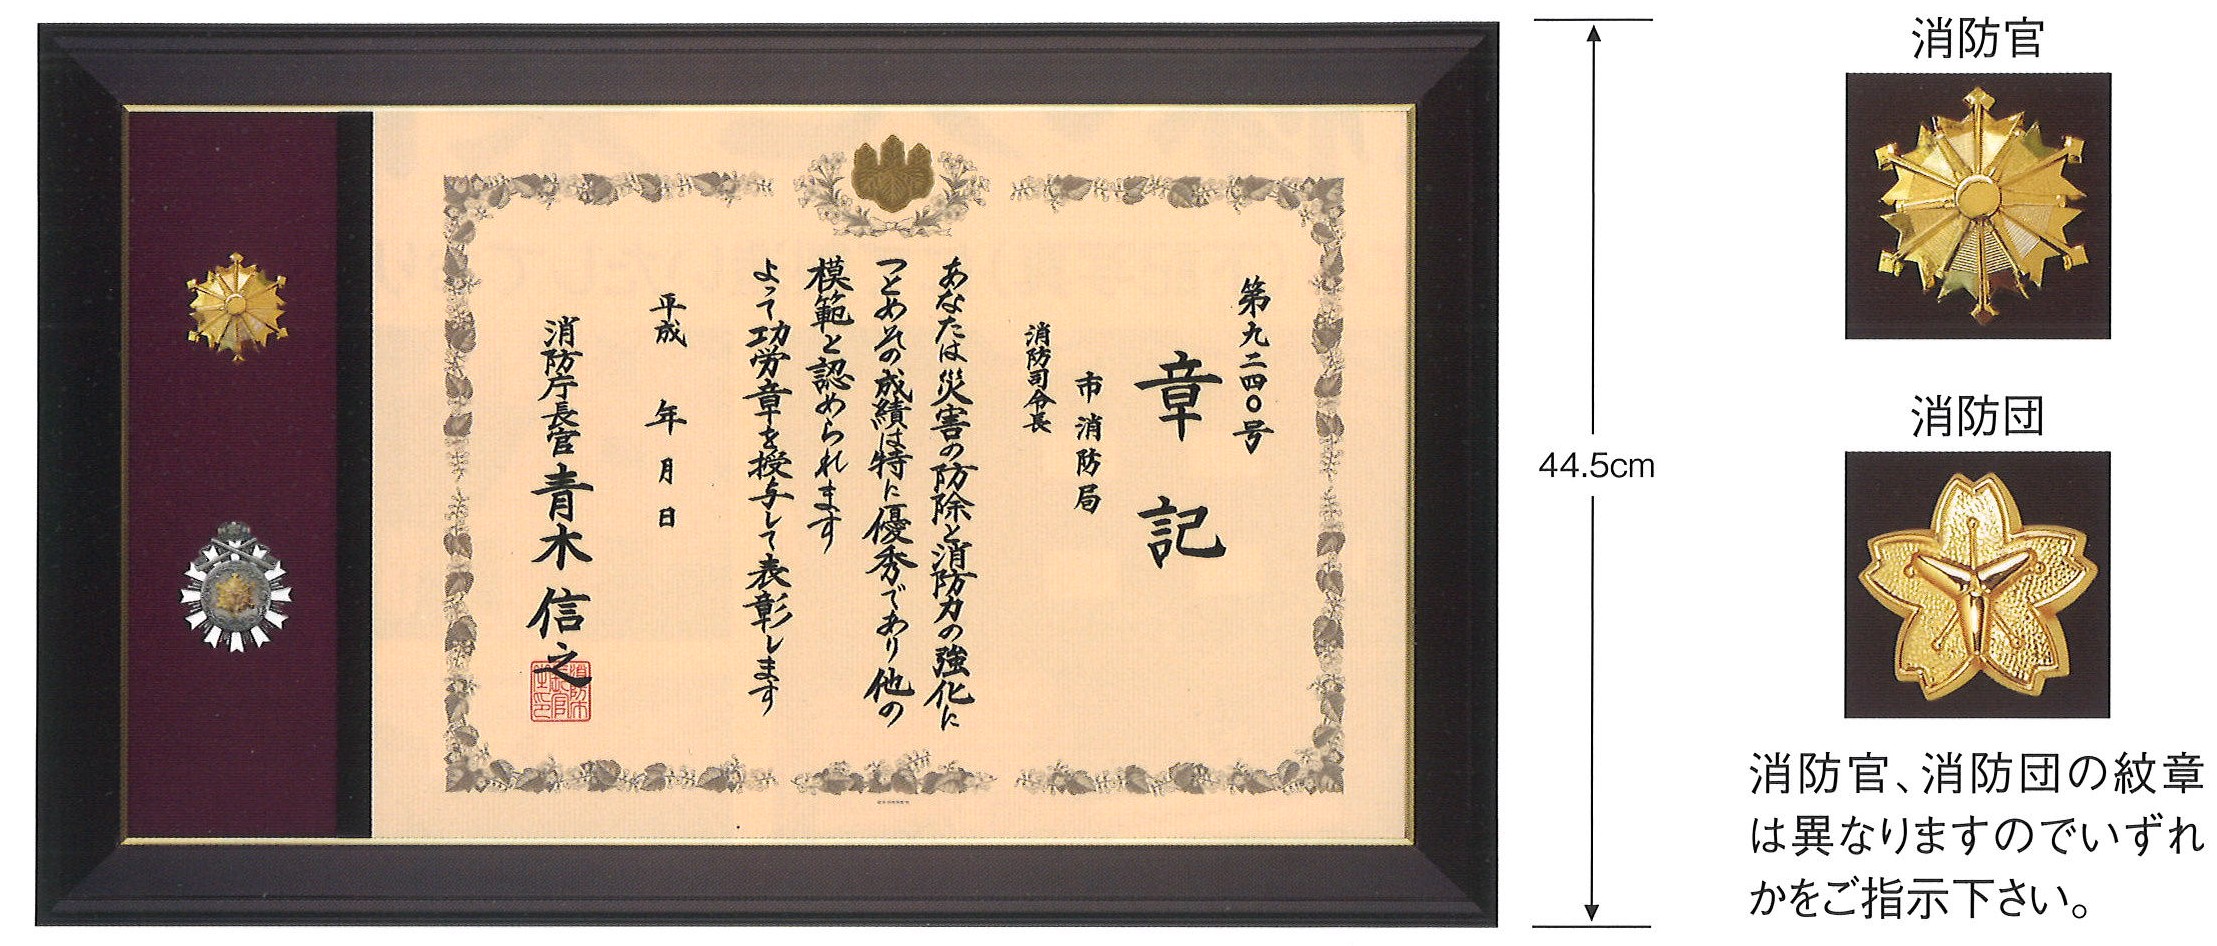 第九二四〇号
章記
市消防局
消防司令長
あなたは災害の防除と消防力の強化に
つとめその成績は特に優秀であり他の
模範と認められます
よって功労章を授与して表彰します
平成 年 月 日
消防庁長官 青木信之
44.5cm
消防官
消防団
消防官、消防団の紋章
は異なりますのでいずれ
かをご指示下さい。